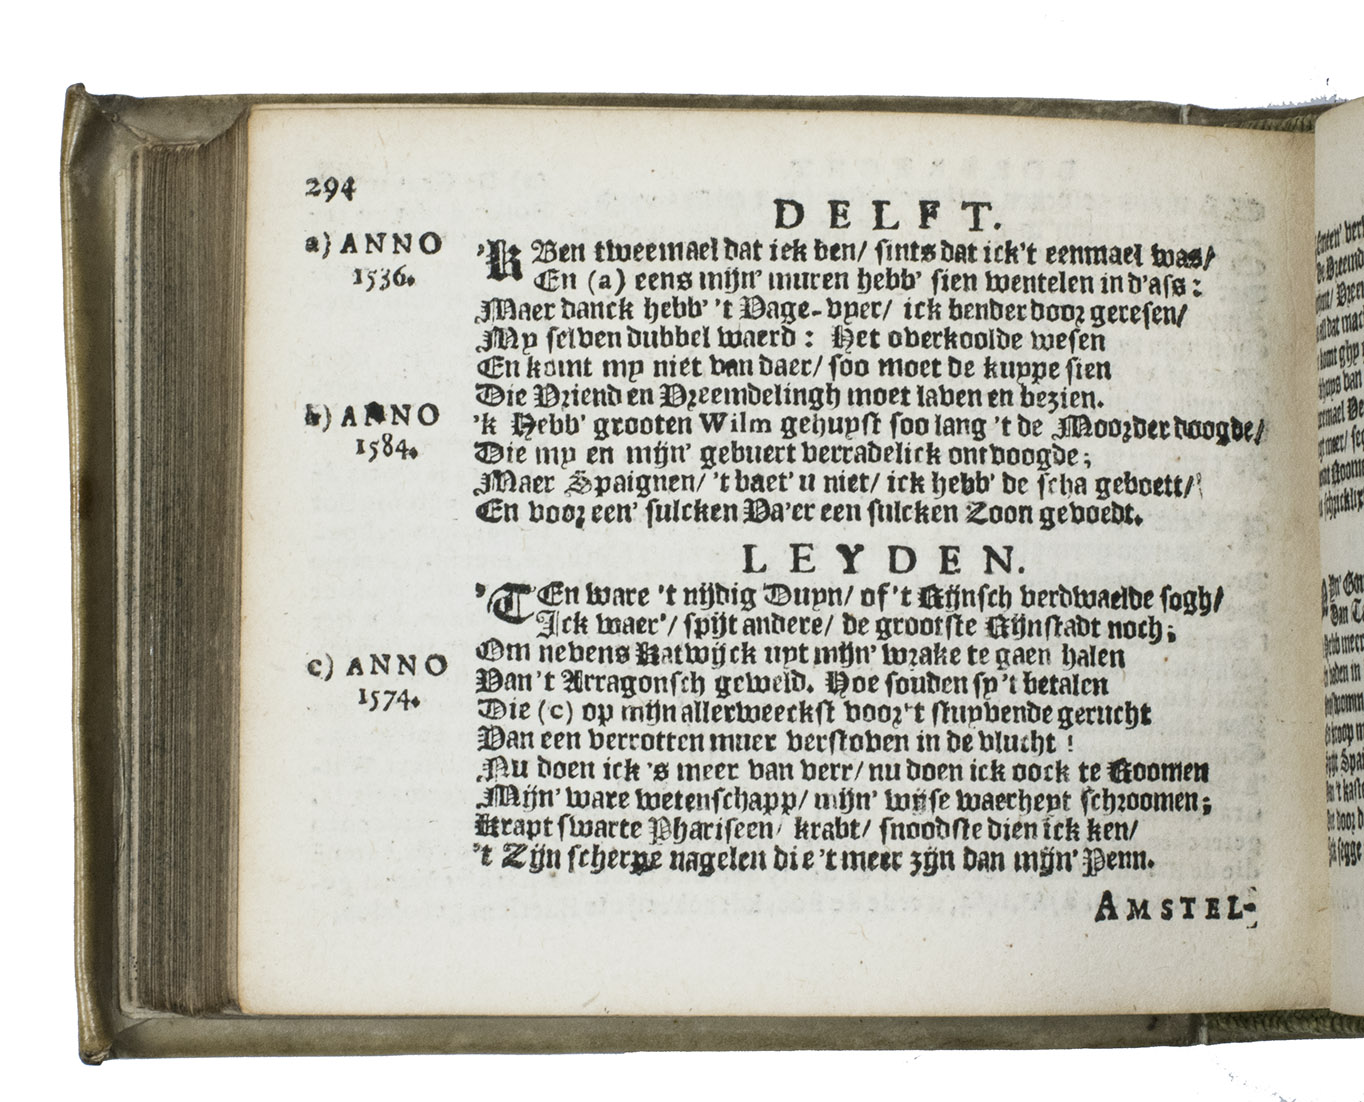 294
DELFT.
a) ANNO
1536.
'K Ben tweemael dat ick ben/ sints dat ick't eenmael was/
En (a) eens mijn' muren hebb' sien wentelen in d'ass:
Maer danck hebb' 't Vage-vyer/ ick bender door geresen/
My selven dubbel waerd: Het overkoolde wesen
En komt my niet van daer/ soo moet de kuype sien
Die Vriend en Vreemdelingh moet laven en bezien.
b) ANNO
1584.
'k Hebb' grooten Wilm gehuyst soo lang 't de Moorder doogde/
Die my en mijn' gebuert verradelick ontvoogde;
Maer Spaignen/ 't baet' u niet/ ick hebb' de scha geboett/
En voor een' sulcken Va'er een sulcken Zoon gevoedt.
LEYDEN.
'T En ware 't nijdig Duyn/ of 't Rijnsch verdwaelde sogh/
Ick waer'/ spijt andere/ de grootste Rijnstadt noch;
Om nevens Katwijck uyt mijn' wrake te gaen halen
c) ANNO
1574.
Van 't Arragonsch geweld. Hoe souden sy 't betalen
Die (c) op mijn allerweeckst voor 't stuyvende gerucht
Van een verrotten muer verstoven in de vlucht!
Nu doen ick 's meer van verr/ nu doen ick oock te Roomen
Mijn' ware wetenschapp/ mijn' wijse waerheyt schroomen;
Krapt swarte Phariseen/ krabt/ snoodste dien ick ken/
't Zijn scherpe nagelen die 't meer zijn dan mijn' Penn.
AMSTEL-